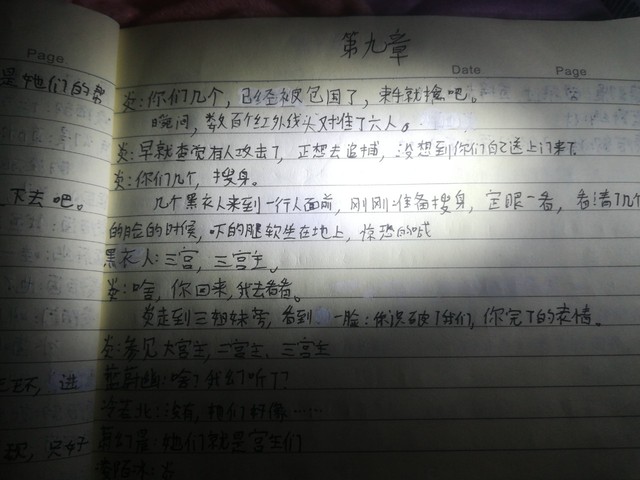 Page
是她们的帮
下去吧。
第九章
Date Page
炎:你们几个，已经被包围了，束手就擒吧。
瞬间，数百个红外线头对准了六人。
炎:早就查觉有人攻击了，正想去追捕，没想到你们自己送上门来了
炎:你们几个，搜身。
几个黑衣人来到一行人面前，刚刚准备搜身，定眼一看，看清了几个
的脸的时候，吓的腿软坐在地上，惊恐的喊
黑衣人:三宫，三宫主。
炎:啥，你回来，我去看看。
炎走到三姐妹旁，看到一脸:你识破了我们，你完了的表情。
炎:参见大宫主，二宫主，三宫主
啥?我幻听了?
没有，她们好像……
她们就是宫主们